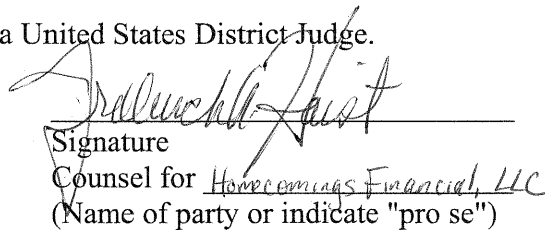 a United States District Judge.
Frederick A. Haist
Signature
Counsel for Homecomings Financial, LLC
(Name of party or indicate "pro se")